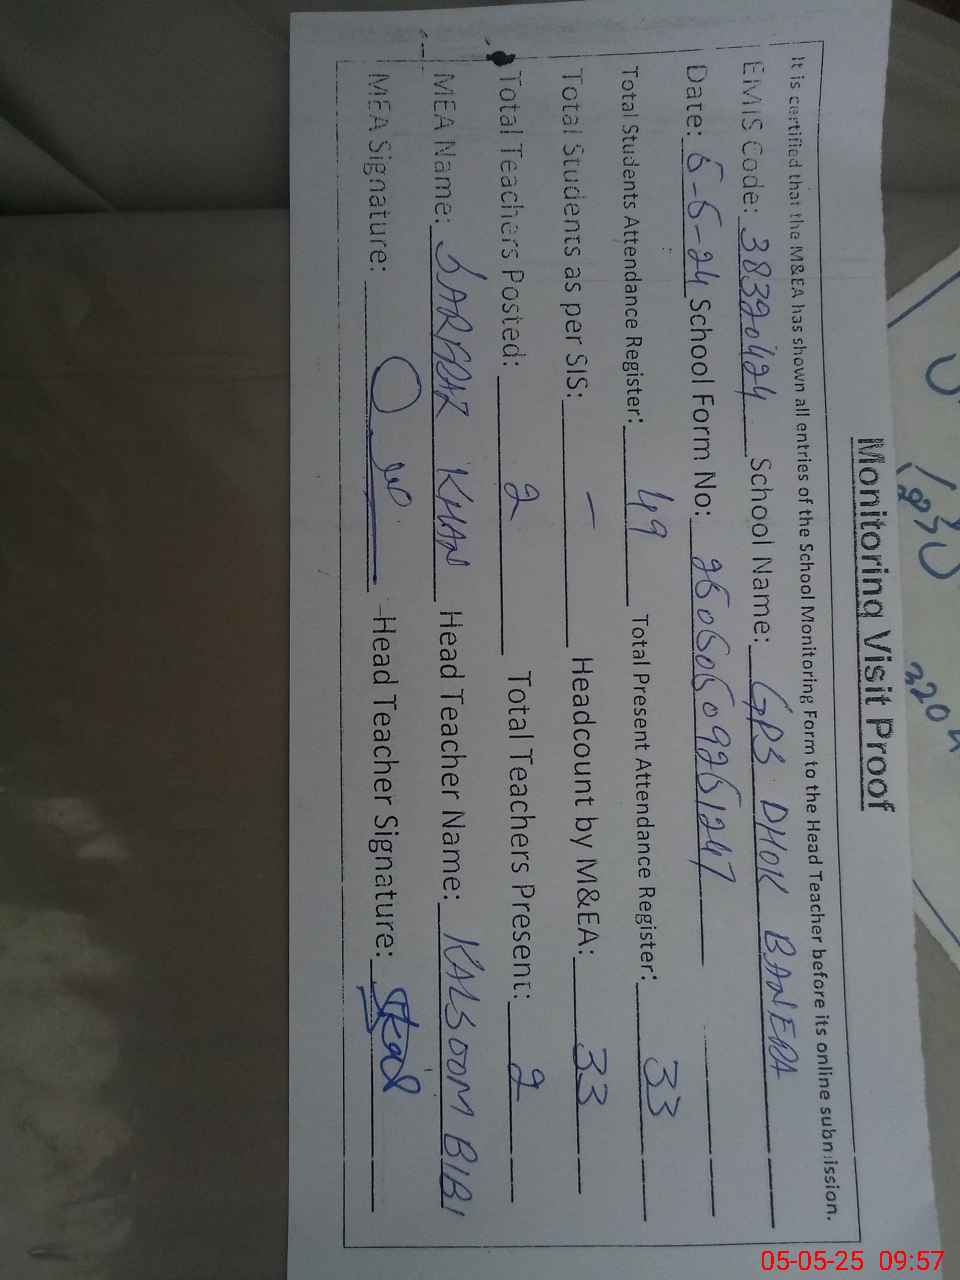 Monitoring Visit Proof
It is certified that the M&EA has shown all entries of the School Monitoring Form to the Head Teacher before its online submission.
EMIS Code: 38320424 School Name: GPS DHOK BANERA
Date: 5-5-24 School Form No: 25050509251247
Total Students Attendance Register: 49 Total Present Attendance Register: 33
Total Students as per SIS: — Headcount by M&EA: 33
Total Teachers Posted: 2 Total Teachers Present: 2
MEA Name: SARFRAZ KHAN Head Teacher Name: KALSOOM BIBI
MEA Signature: Head Teacher Signature:
320
05-05-25 09:57